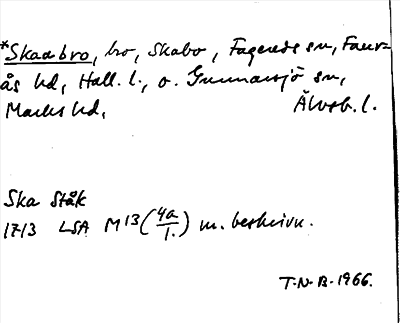 *Skaabro, bro, Skabo, Fagereds sn, Faur-
ås hd, Hall. l., o. Gunnarsjö sn,
Marks hd, Älvsb. l.
Ska Ståk
1713 LSA M13 (4a/1.) m. beskrivn.
T.N.B. 1966.